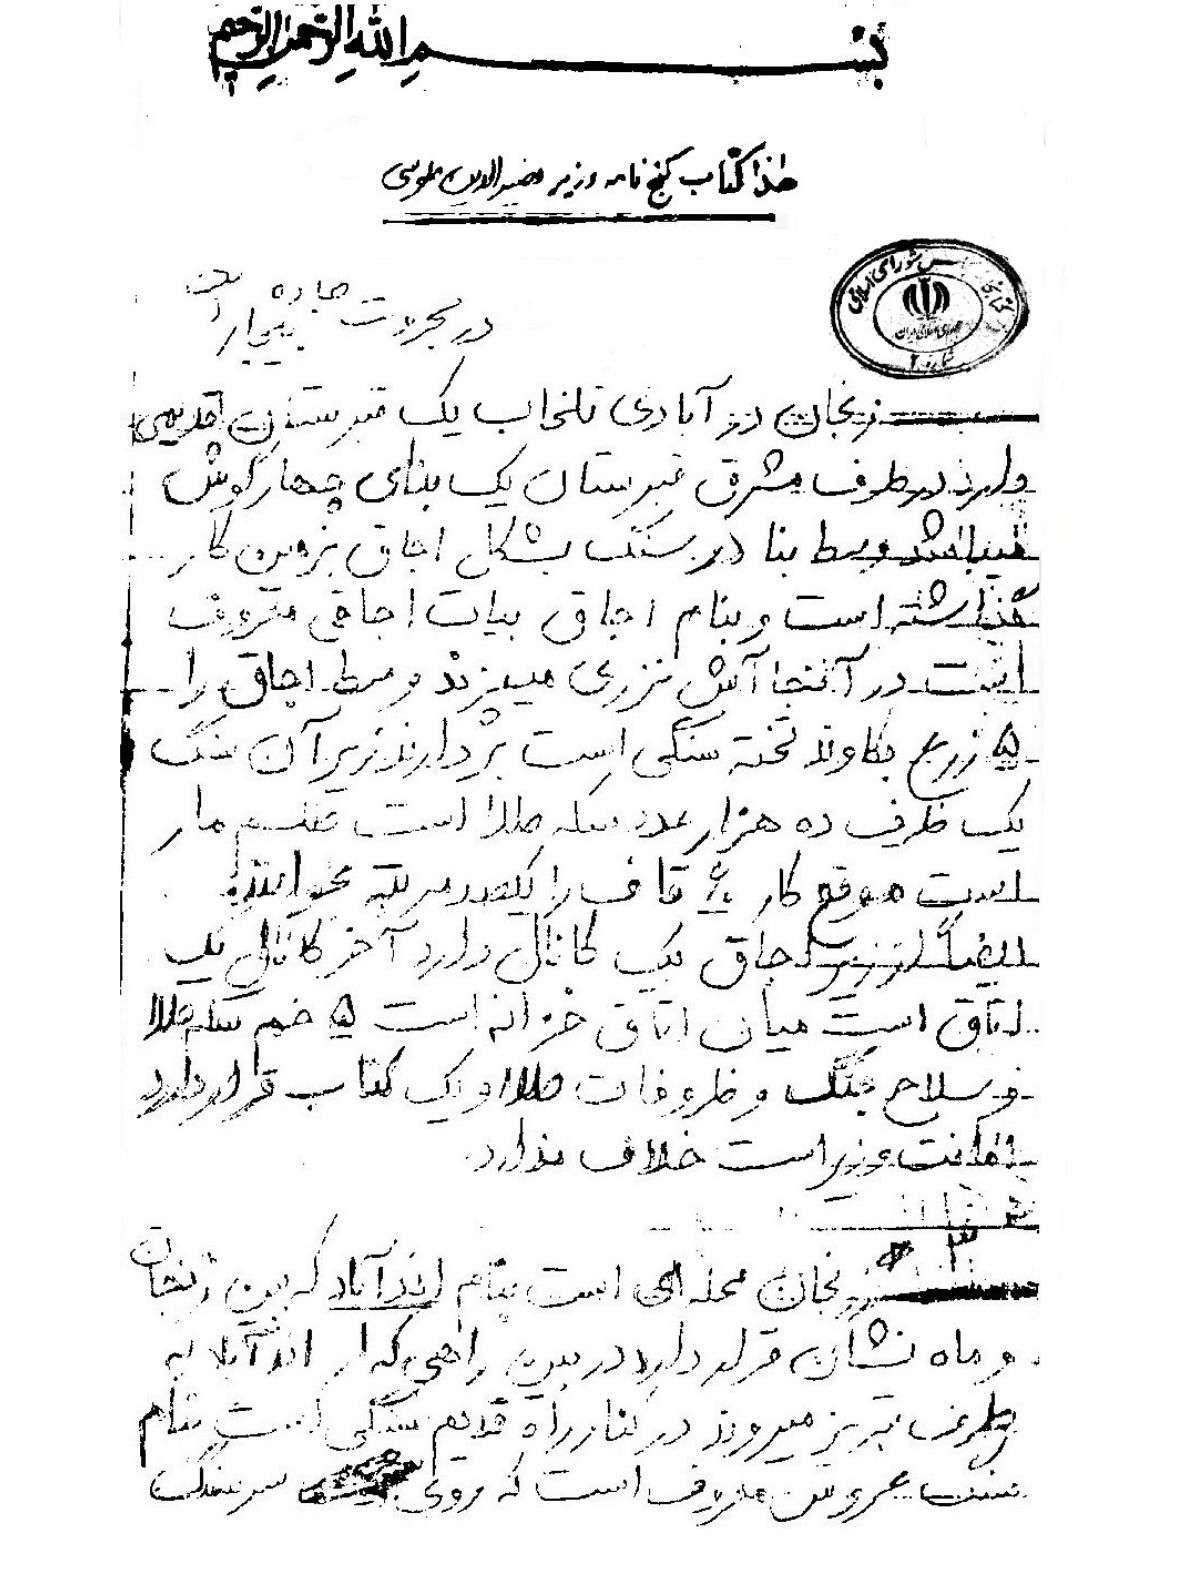 بسم الله الرحمن الرحیم
هذا کتاب گنج نامه وزیر نصیر الدین طوسی
شورای اسلامی
جمهوری اسلامی ایران
شماره ۲
در بجروت جاده
بیجار است
زنجان در آبادی تلخاب یک قبرستان قدیمی
دارد در طرف مشرق قبرستان یک بنای چهار گوش
میباشد وسط بنا در سنگ بشکل اجاق بزمین کار
گذاشته است و بنام اجاق بیات اجاقی معروف
است در آنجا آش نزری میپزند وسط اجاق را
۵ زرع بکاوند تخته سنگی است بردارند زیر آن سنگ
یک ظرف ده هزار عدد سکه طلا است طلسم مار
است موقع کار ۶ قاف را یکصد مرتبه بخوانند
ایضاً از زیر اجاق یک کانال دارد آخر کانال یک
اتاق است میان اتاق خزانه است ۵ خم سکه طلا
و سلاح جنگ و ظروفات طلا و یک کتاب قرار دارد
امانت وزیر است خلاف ندارد
۳
زنجان محله ای است بنام انذآباد که بین زنجان
و ماه نشان قرار دارد در بین راهی که از انذآباد به
طرف تبریز میروند در کنار راه قدیم سنگی است بنام
سنگ عروس معروف است که روی سر سنگ